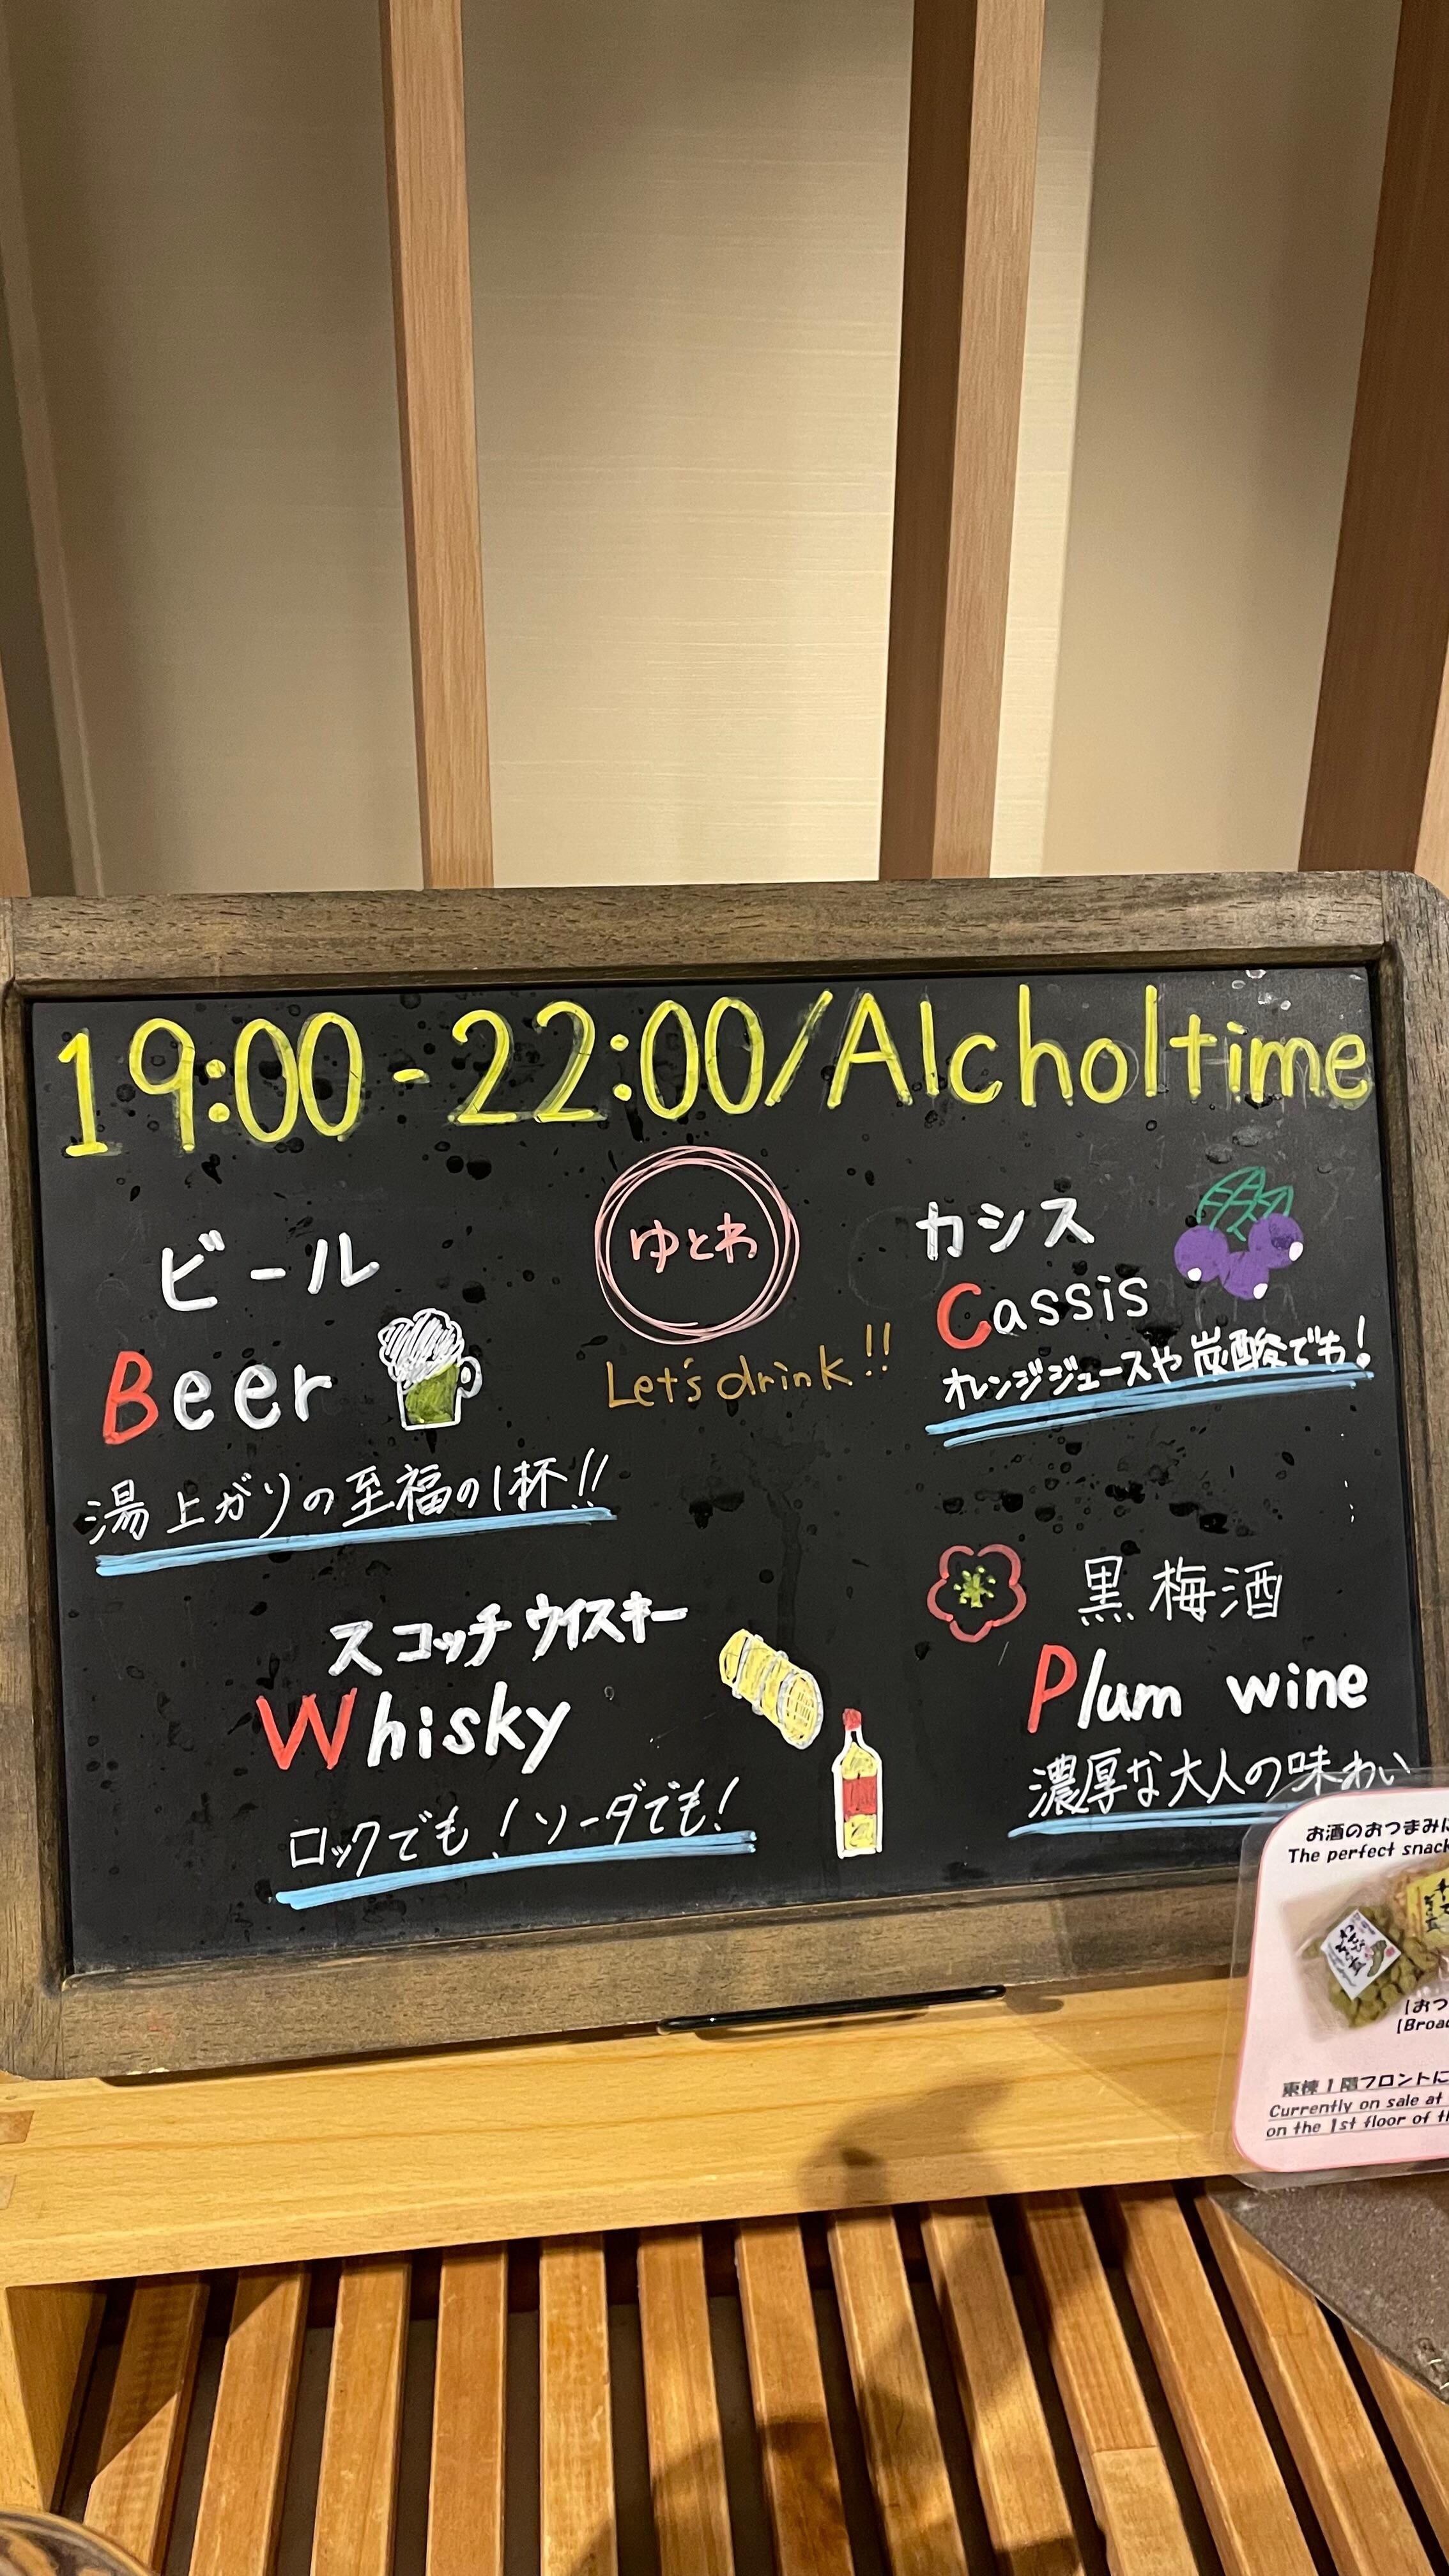 19:00-22:00/Alcholtime
ゆとわ
Let's drink!!
ビール
Beer
湯上がりの至福の1杯!!
カシス
Cassis
オレンジジュースや炭酸でも!
スコッチウイスキー
Whisky
ロックでも!ソーダでも!
黒梅酒
Plum wine
濃厚な大人の味わい
お酒のおつまみに
The perfect snack
(おつ
(Broa
東棟1階フロントに
Currently on sale at
on the 1st floor of th